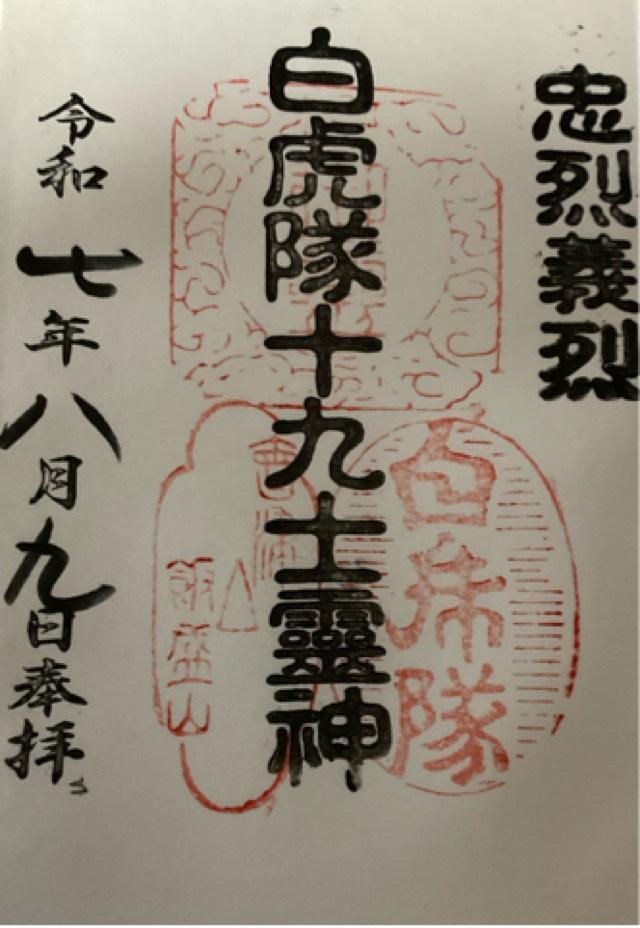 忠烈義烈
白虎隊十九士靈神
白虎隊
飯盛山
令和七年八月九日奉拝